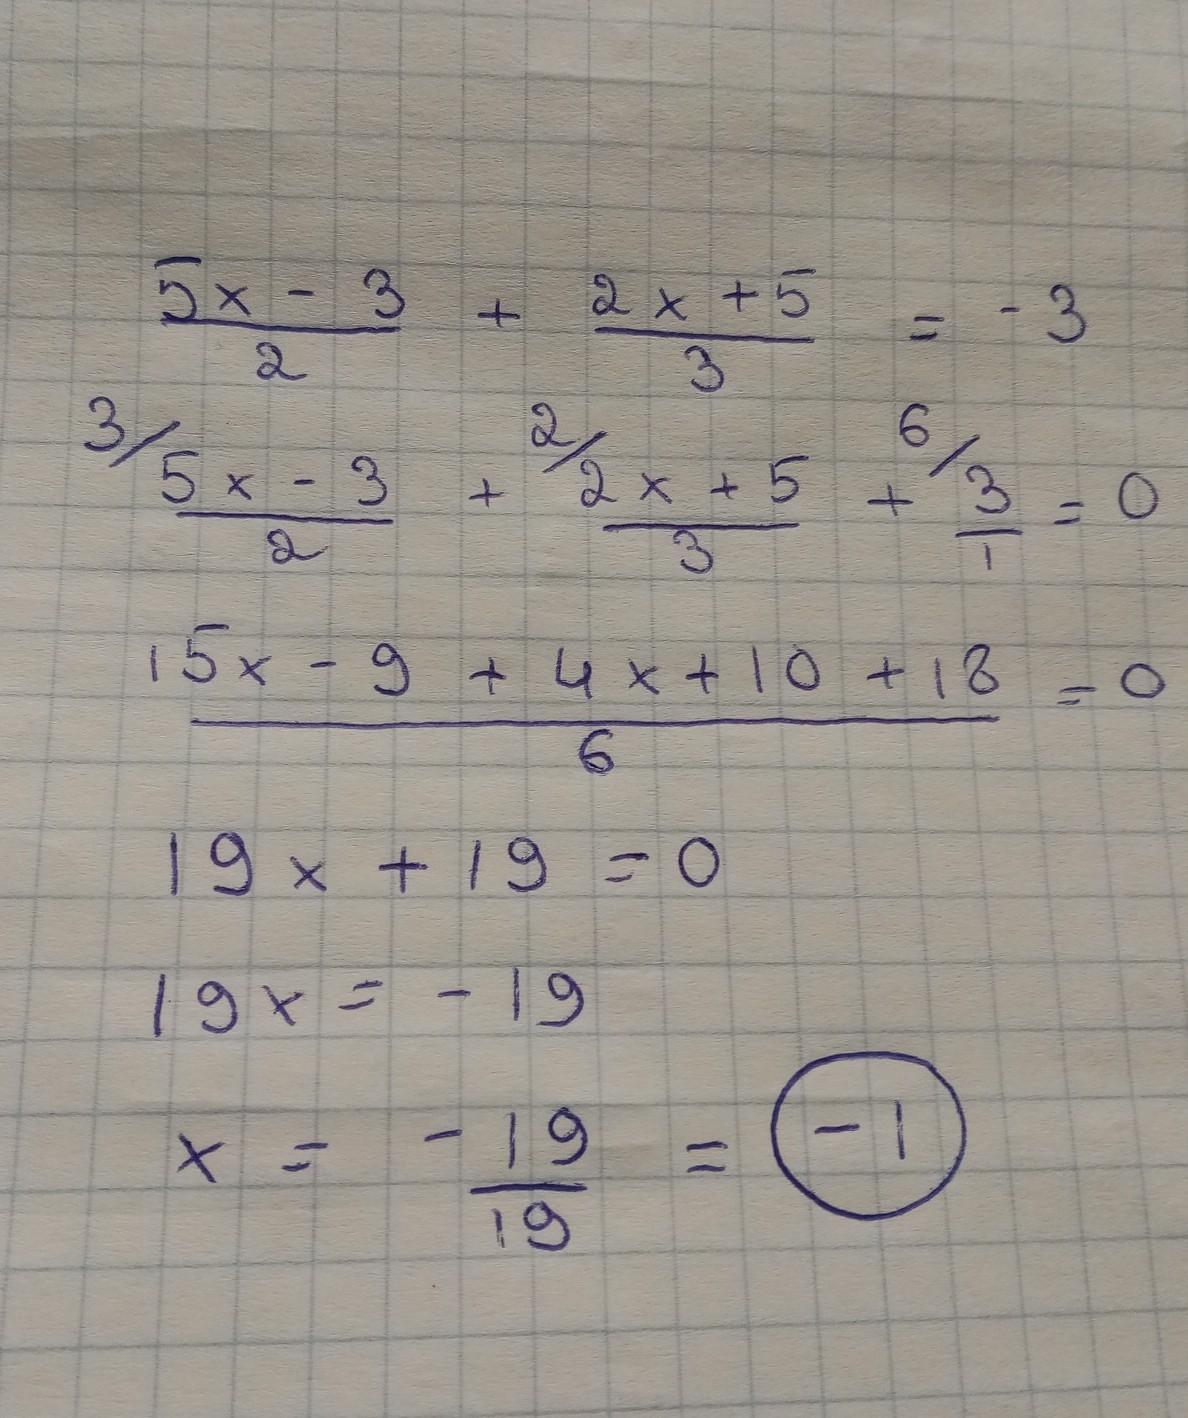 (5x - 3)/2 + (2x + 5)/3 = -3
3/ (5x - 3)/2 + 2/ (2x + 5)/3 + 6/ 3/1 = 0
(15x - 9 + 4x + 10 + 18)/6 = 0
19x + 19 = 0
19x = -19
x = -19/19 = -1